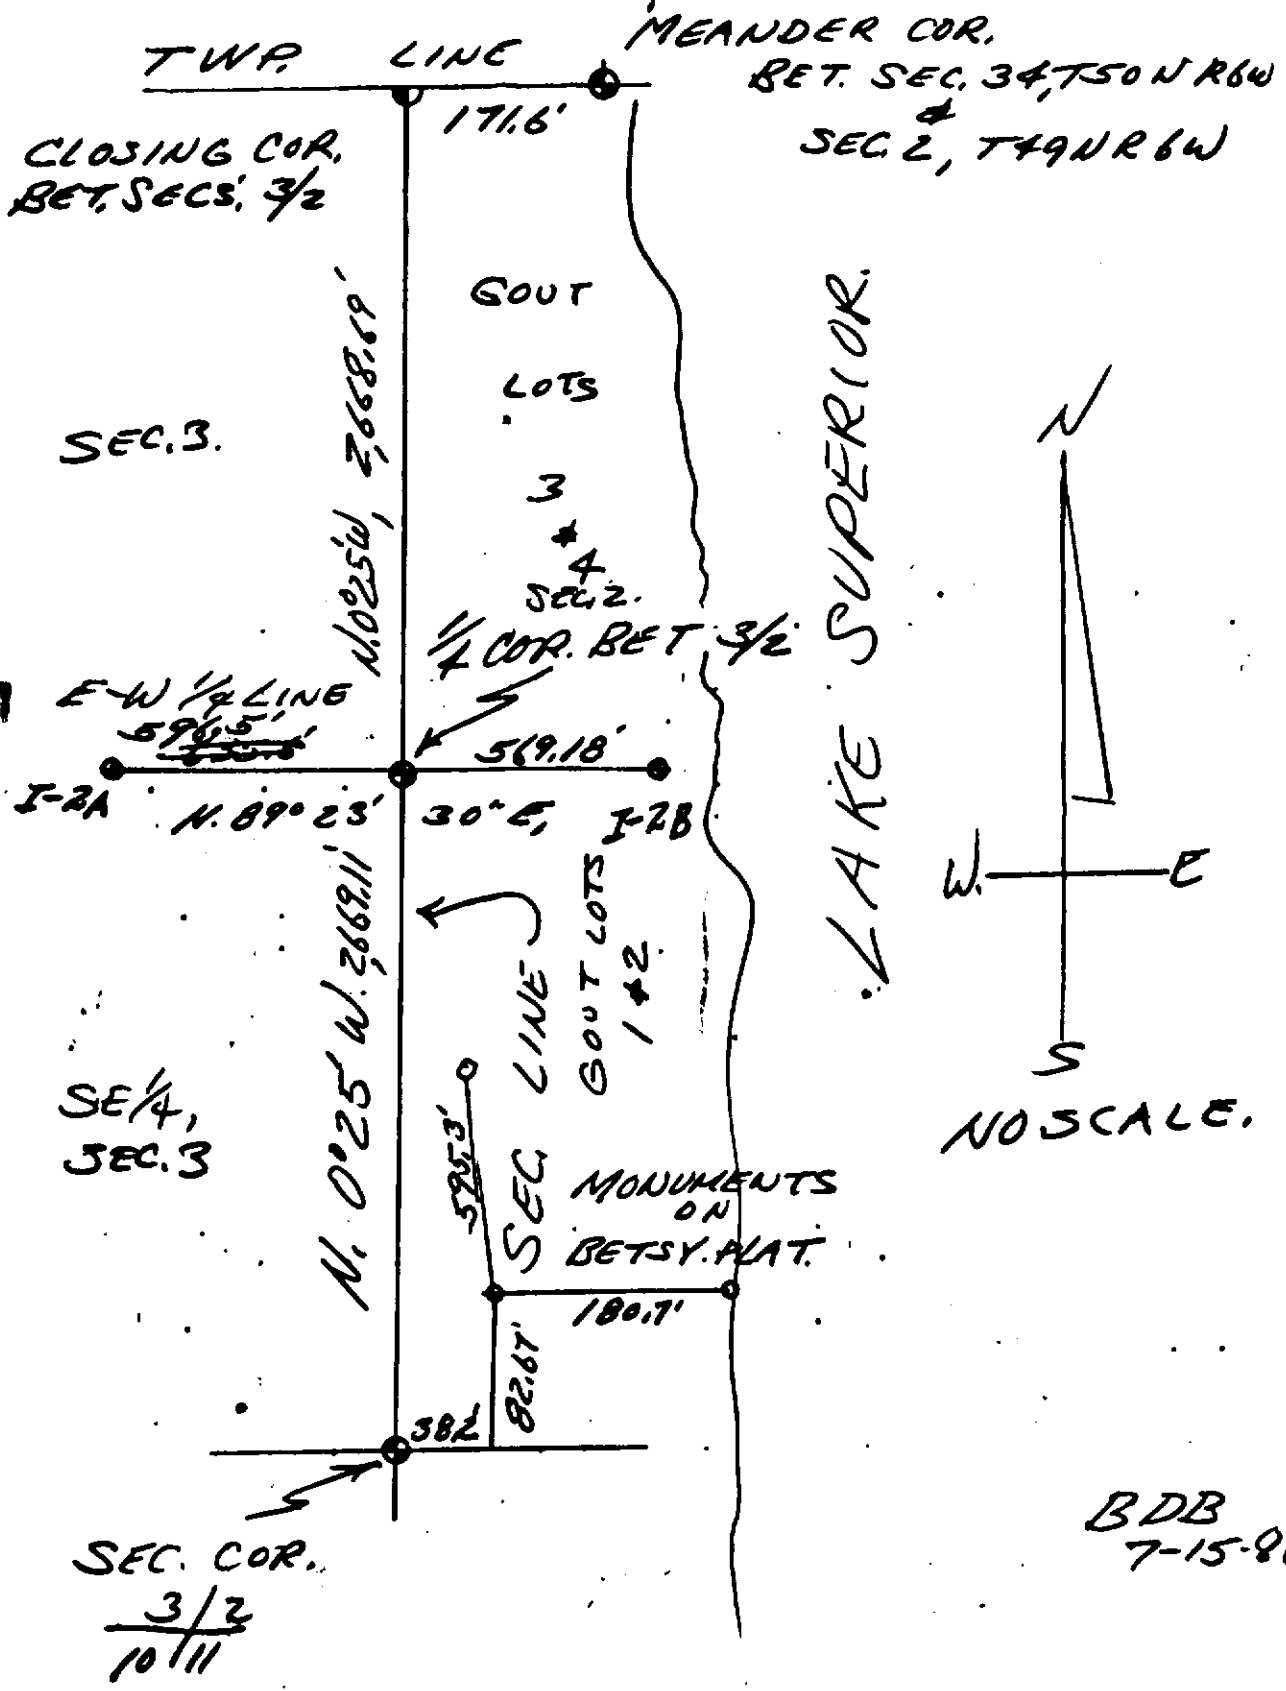 TWP. LINE
MEANDER COR.
BET. SEC. 34, T50N R6W
&
SEC. 2, T49N R6W
171.6'
CLOSING COR.
BET. SECS. 3/2
GOVT
LOTS
3
&
4
SEC. 2.
N. 0°25'W, 2,668.69'
SEC. 3.
LAKE SUPERIOR.
N
1/4 COR. BET 3/2
E-W 1/4 LINE
596.5'
569.18'
I-2A
N. 89° 23' 30" E,
I-2B
W.
E
S
NO SCALE.
N. 0°25' W. 2,669.11'
SEC. LINE
GOVT LOTS
1 & 2
SE 1/4,
SEC. 3
595.3'
MONUMENTS
ON
BETSY. PLAT.
180.7'
82.67'
382'
SEC. COR.
3/2
10/11
BDB
7-15-8